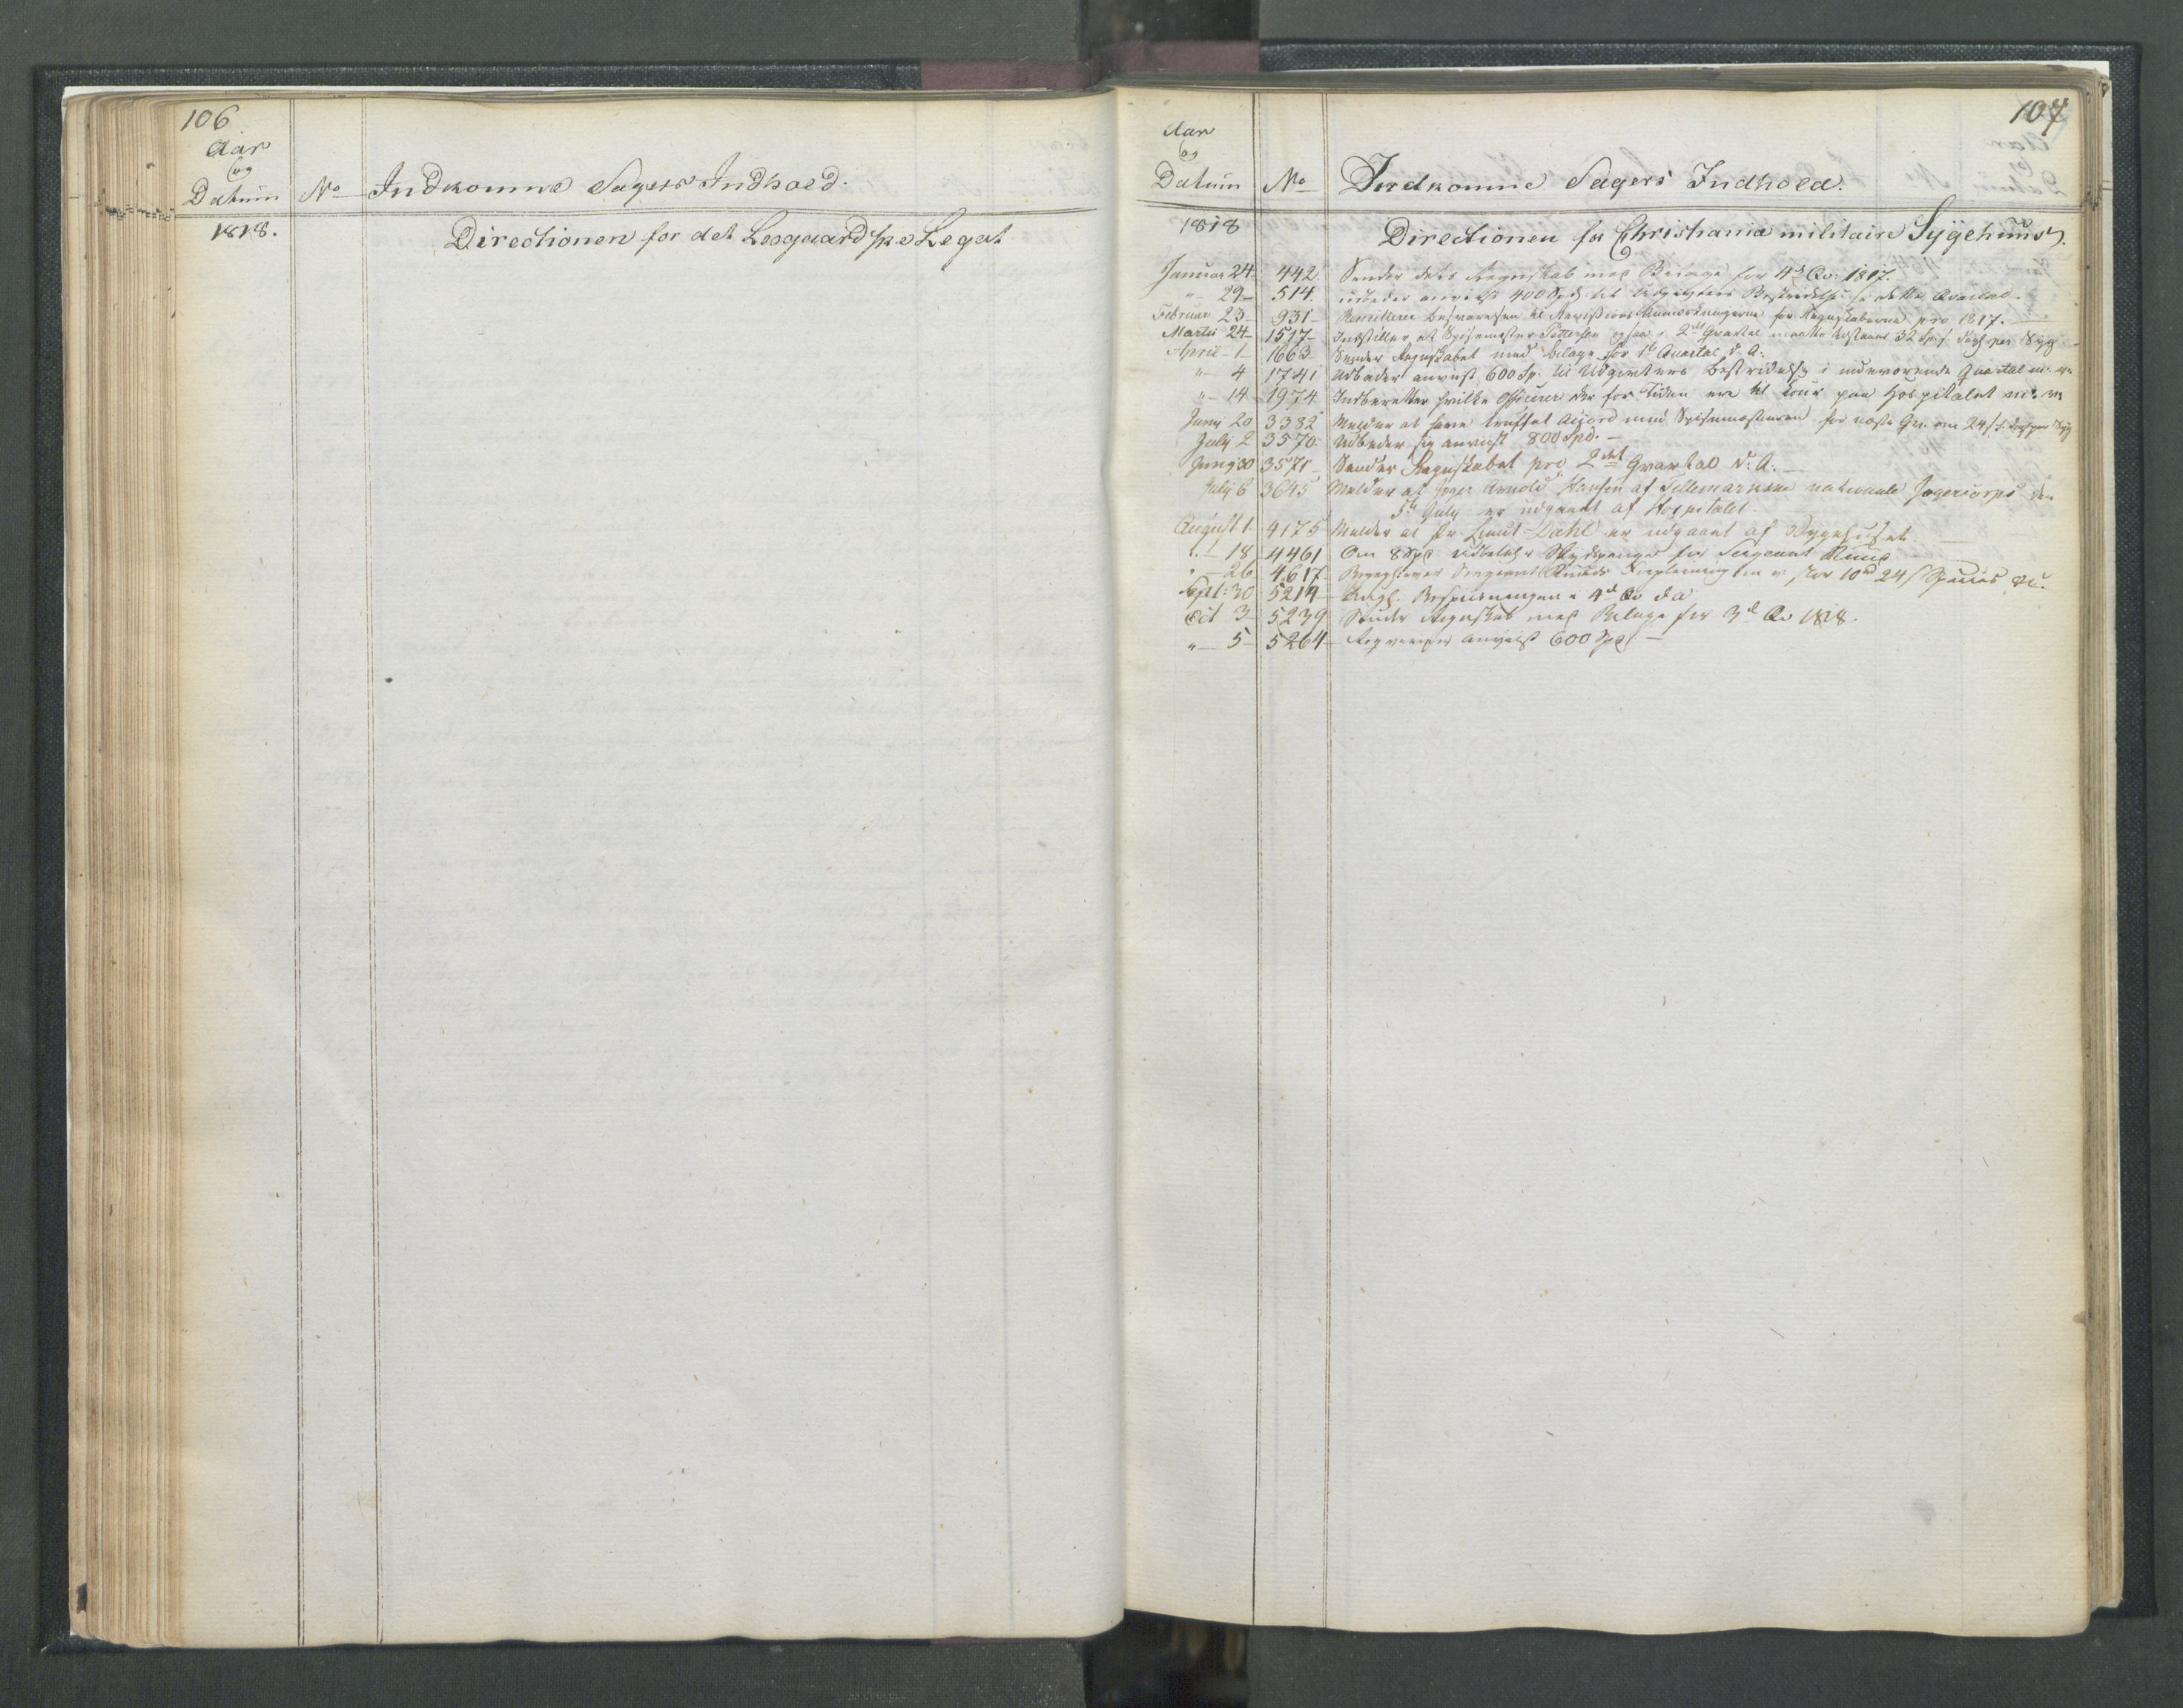 106
Aar
og
Datum No Indkomne Sagers Indhold.
1818. Directionen for det Leegaardske Legat
107
Aar
og
Datum No Indkomne Sagers Indhold.
1818 Directionen for Christiania militaire Sygehuus.
Januar 24 442 Sender dets Regnskab med Bilage for 4de Qv: 1817.
"- 29- 514. udbeder anviist 400 Spd: til Udgivters Bestridelse i dette Qvartal.
Februar 23- 931- Remitterer besvarelsen til Revisions Anmærkningerne for Regnskaberne pro 1817.
Martii 24- 1517- Indstiller at Spisemester Pettersen ogsaa i 2det Qvartal maatte tilstaaes 32 sp. s. Dagl. per Syg
April- 1- 1663- Sender Regnskabet med bilage for 1te Quartal d. A.
"- 4 1741 Udbeder anviist 600 Sp. til Udgivters bestridelse i indeværende Quartal m. v.
"- 14 1974 Indberetter hvilke Officerer der for Tiden ere til Cour paa Hospitalet m. v.
Juny 20 3382 Melder at have truffet Accord med Spisemesteren for næste Qv. om 24 s. daglig per Syg
July 2 3570. Udbeder sig anviist 800 Spd. -
Juny 30 3571- Sender Regnskabet pro 2det Qvartal d. A. -
July 6 3645 Melder at Jæger Arnold Hansen af Tellemarkske nationale Jægercorps den
5te July er udgaaet af Hospitalet.
August 1 4175 Melder at Pr. Lieut Dahl er udgaaet af Sygehuset
"- 18 4461 Om 8 Spd udbetalte Skydspenge for Sergeant Ruud
"- 26 4617- Sergeant Ruuds Forpleining 10 24 s Species
Sept: 30 5214- Angl. Bespiisningen i 4de Qv d A
Oct 3- 5239 Sender Regnskab med Bilage for 3de Qv 1818.
"- 5- 5264- anviist 600 Spd -